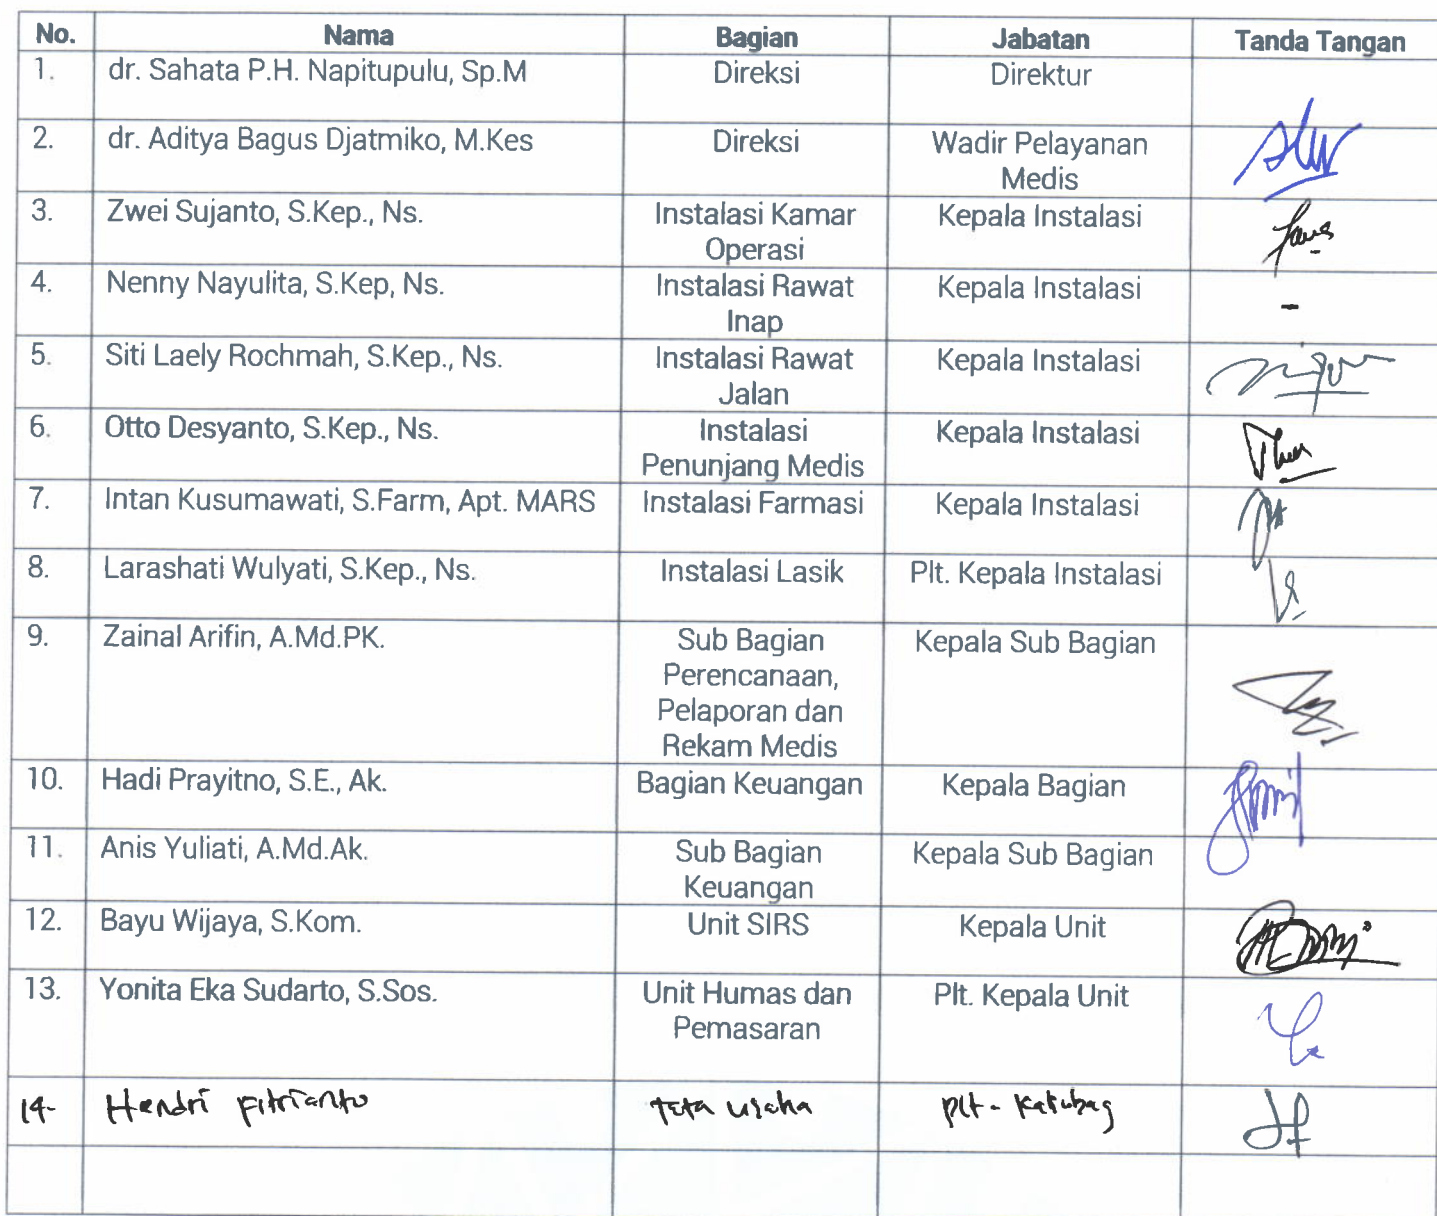 No. Nama Bagian Jabatan Tanda Tangan
1. dr. Sahata P.H. Napitupulu, Sp.M Direksi Direktur
2. dr. Aditya Bagus Djatmiko, M.Kes Direksi Wadir Pelayanan
Medis
3. Zwei Sujanto, S.Kep., Ns. Instalasi Kamar Kepala Instalasi
Operasi
4. Nenny Nayulita, S.Kep, Ns. Instalasi Rawat Kepala Instalasi -
Inap
5. Siti Laely Rochmah, S.Kep., Ns. Instalasi Rawat Kepala Instalasi
Jalan
6. Otto Desyanto, S.Kep., Ns. Instalasi Kepala Instalasi
Penunjang Medis
7. Intan Kusumawati, S.Farm, Apt. MARS Instalasi Farmasi Kepala Instalasi
8. Larashati Wulyati, S.Kep., Ns. Instalasi Lasik Plt. Kepala Instalasi
9. Zainal Arifin, A.Md.PK. Sub Bagian Kepala Sub Bagian
Perencanaan,
Pelaporan dan
Rekam Medis
10. Hadi Prayitno, S.E., Ak. Bagian Keuangan Kepala Bagian
11. Anis Yuliati, A.Md.Ak. Sub Bagian Kepala Sub Bagian
Keuangan
12. Bayu Wijaya, S.Kom. Unit SIRS Kepala Unit
13. Yonita Eka Sudarto, S.Sos. Unit Humas dan Plt. Kepala Unit
Pemasaran
14- Hendri Fitrianto Tata usaha Plt - Kasubag